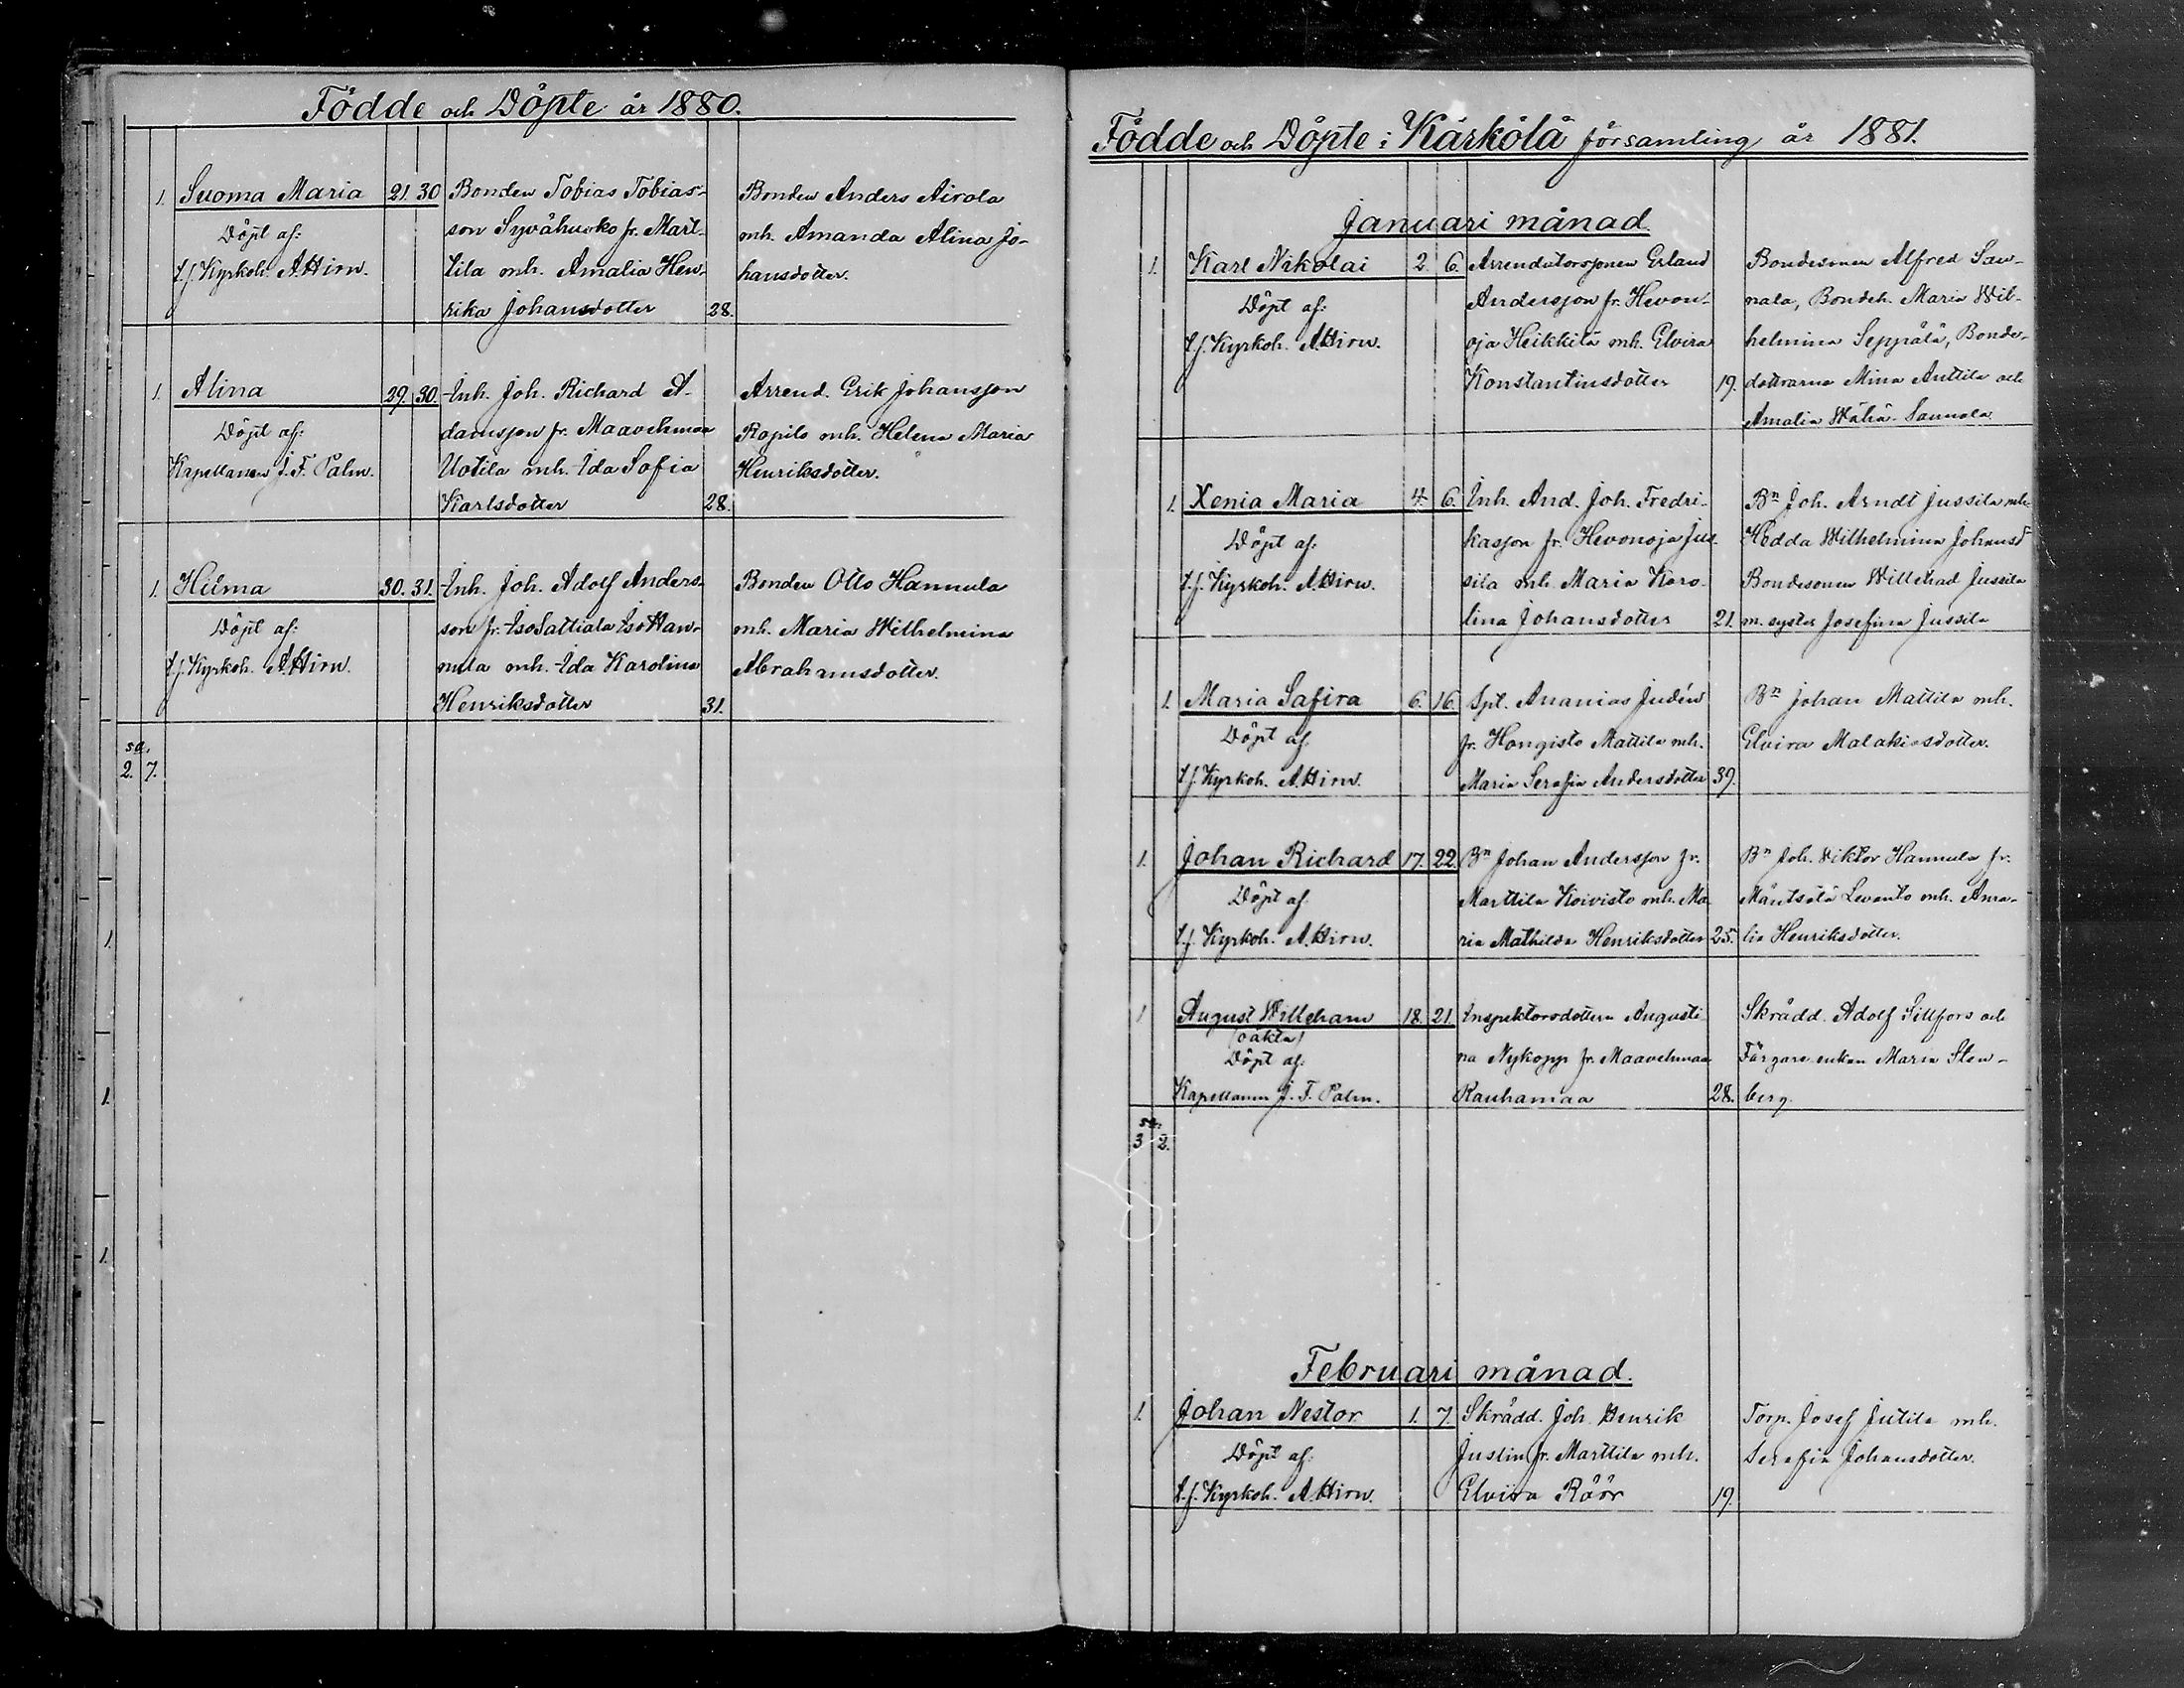 Födde och Döpte år 1880.
1. Suoma Maria 21. 30 Bonden Tobias Tobias- Bonden Anders Airola
Döpt af: son Syvähuoko fr. Mart- mh. Amanda Alina Jo-
t.f. Kyrkoh. A. Hirn. tila mh. Amalia Hen- hansdotter.
rika Johansdotter 28.
1. Alina 29. 30. Inh. Joh. Richard A- Arrend. Erik Johansson
Döpt af: damsson fr. Maavehmaa Ropilo mh. Helena Maria
Kapellanen J. F. Palm. Uotila mh. Ida Sofia Henriksdotter.
Karlsdotter 28.
1. Hilma 30. 31. Inh. Joh. Adolf Anders- Bonden Otto Hannula
Döpt af: son fr. IsoSattiala IsoHan- mh. Maria Wilhelmina
t.f. Kyrkoh. A. Hirn. nula mh. Ida Karolina Abrahamsdotter.
Henriksdotter 31.
sa.
2. 7.
1.
1.
1.
Födde och Döpte i Kärkölä församling år 1881.
Januari månad.
1. Karl Nikolai 2. 6. Arrendatorssonen Erland Bondesonen Alfred San-
Döpt af: Andersson fr. Hevon- nala, Bondeh. Maria Wil-
t.f. Kyrkoh. A. Hirn. oja Heikkilä mh. Elvira helmina Seppälä, Bonde-
Konstantinsdotter 19. döttrarna Mina Anttila och
Amalia Wähä-Sannola.
1. Xenia Maria 4. 6. Inh. And. Joh. Fredri- Bn Joh. Arndt Jussila mh.
Döpt af: kasson fr. Hevonoja Jus- Hedda Wilhelmina Johansd
t.f. Kyrkoh. A. Hirn. sila mh. Maria Karo- Bondesonen Willehad Jussila
lina Johansdotter 21. m. syster Josefina Jussila
1. Maria Safira 6. 16. Spt. Ananias Judén Bn Johan Mattila mh.
Döpt af. fr. Hongisto Mattila mh. Elvira Malakiasdotter.
t.f. Kyrkoh. A. Hirn. Maria Serafia Andersdotter 39.
1. Johan Richard 17. 22. Bn Johan Andersson fr. Bn Joh. Viktor Hannula fr.
Döpt af. Marttila Koivisto mh. Ma- Mäntsälä Levanto mh. Ama-
t.f. Kyrkoh. A. Hirn. ria Mathilda Henriksdotter 25. lia Henriksdotter.
1 August Willeham 18. 21. Inspektorsdottern Augusti- Skrädd. Adolf Sillfors och
(oäkta)
Döpt af: na Nykopp fr. Maavehmaa Färgare enkan Maria Sten-
Kapellanen J. F. Palm. Rauhamaa 28. berg.
sa.
3 2.
Februari månad.
1. Johan Nestor 1. 7. Skrädd. Joh. Henrik Torp. Josef Jutila mh.
Döpt af. Justin fr. Marttila mh. Serafia Johansdotter.
t.f. Kyrkoh. A. Hirn. Elvira Röör 19.